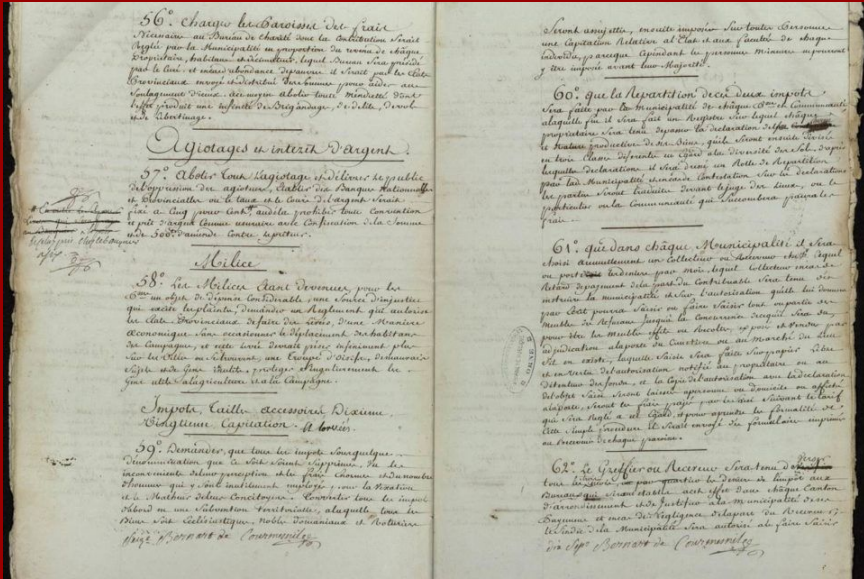 56°. Charger les Paroisses des frais
Nécessaire au Bureau de Charité dont la Contribution Serait
Reglée par la Municipalité en proportion du revenu de châque
Propriétaire, habitans et lequel Bureau Sera présidé
par le Curé et
Provinciaux envoyé et distribué des Sommes pour aider au
Soulagement d'iceux. abolir toute mendicité dont
produit une infinité de Brigandage, de délits, de vols
et de libertinage.
Agiotages et interêt d'argent.
57°. Abolir tout l'agiotage et délivrer le public
de l'oppression des agioteurs, Etablir des Banques Nationnalles
et Provincialles ou le taux et le Cours de l'argent Serait
fixé a Cinq pour Cent, audela prohiber toute Convention
et prêt d'argent Comme usuraire avec Confiscation de la Somme
et de 500# d'amende Contre le prêteur.
Milice
58°. Les Milices étant devenues pour les
un objet de dépense Considérable, une Source d'injustice
qui excite les plaintes, demander un Reglement qui autorise
les Etats Provinciaux de faire des levées, d'une Manière
œconomique Sans occasionner le déplacement des habitans
des Campagnes, et cette levée devrait peser infiniment plus
Sur les Villes ou Se trouvent une troupe d'oisifs, de mauvais
Sujets et de Gens inutiles, protéger Singulièrement les
Gens utils a l'agriculture et a la Campagne.
Impots, Taille accessoires Dixieme
Vingtieme Capitation
59°. Demander, que tous les impots Sous quelque
Dénomination que Ce Soit Soient Supprimés, vu les
inconveniens de leur perception et les frais énormes et du nombre
d'hommes qui y Sont inutilement employés, pour la Vexation
et le Malheur de leurs Concitoyens. Convertir tous les impots
d'abord en une Subvention Territorialle, a laquelle tous les
Biens Soit Ecclésiastiques, nobles domaniaux et Roturiers
Bernart de Courmesnil
Seront assujettis, ensuite imposer Sur toutes Personnes
une Capitation Relative a l'Etat et aux facultés de châque
individu, parceque Cependant les personnes Mineures ne pourront
y être imposés avant leur Majorité.
60°. que la Repartition de ces deux impots
Sera faite par la Municipalité de châque ou Communauté
a laquelle fin il Sera fait un Registre Sur lequel châque
propriétaire Sera tenu de passer la déclaration de
et Nature productive de Ses Biens, qu'ils Seront ensuite divisés
en trois Classes differentes en égard a la diversité des Sols, d'après
laquelle déclaration il Sera dressé un Rolle de Repartition
par la dite Municipalité et en cas de Contestation Sur les déclarations
les parties Seront devant le Juge des Lieux, ou le
particulier ou la Communauté qui Succombera payera les
frais.
61°. que dans châque Municipalité il Sera
choisi annuellement un Collecteur ou Receveur lequel
les deniers par mois, lequel Collecteur en cas de
Retard de payement de la part du Contribuable Sera tenu d'en
instruire la municipalité et Sur l'autorisation qu'elle lui donnera
par Ecrit pourra Saisir ou faire Saisir tout ou partie des
meubles du Refusant jusqu'a la Concurrence de ce qu'il Sera dû,
pour être les meubles effets ou Recoltes, exposés et vendus par
adjudication a la porte du Cimetiere ou au marché du Lieu
S'il en existe, laquelle Saisie Sera faite Sur papier Libre
et en vertu de l'autorisation notifié au proprietaire ou au
détenteur des fonds, et la Copie de l'autorisation avec la déclaration
des objets Saisis Seront laissés a personne ou domicile ou affiché
a la porte, Seront les frais payés par les dits Suivant le tarif
qui Sera Reglé a cet égard, et pour apprendre les formalités de
Cette Simple procédure il Serait envoyé des formulaires imprimés
au Receveur de châque paroisse.
62°. Le Greffier ou Receveur Sera tenu de
tous les mois, ou par quartier les deniers de l'impot aux
Bureaux qui Seront établis a cet effet dans châque Canton
d'arrondissement et de Justifier a la municipalité de Ses
payemens et en cas de Négligence de la part du Receveur
le Sindic de la Municipalité Sera autorisé a le faire Saisir
dix Sept. Bernart de Courmesnil